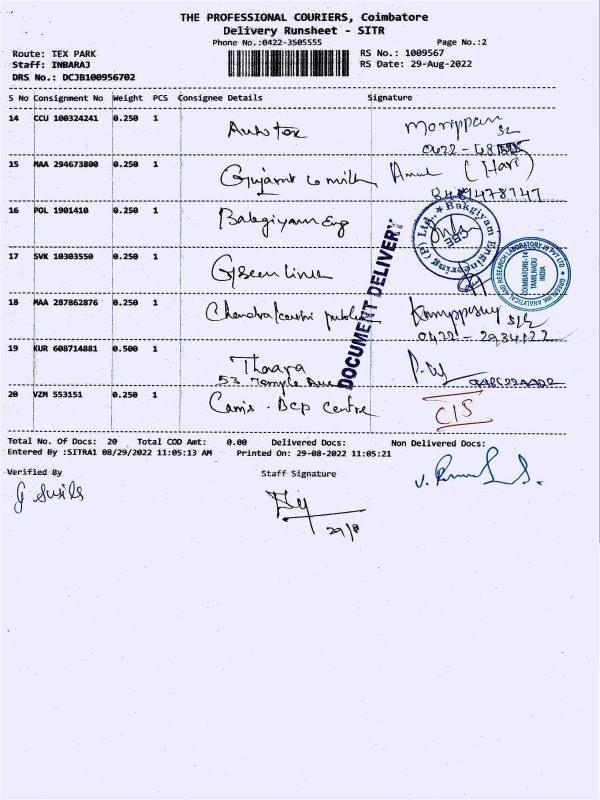 THE PROFESSIONAL COURIERS, Coimbatore
Delivery Runsheet - SITR
Phone No.:0422-3505555 Page No.:2
Route: TEX PARK RS No.: 1009567
Staff: INBARAJ RS Date: 29-Aug-2022
DRS No.: DCJB100956702
S No Consignment No Weight PCS Consignee Details Signature
14 CCU 100324241 0.250 1 Autotex
15 MAA 294673800 0.250 1 Gujarat co milk Amul (Hari)
8489478747
16 POL 1901410 0.250 1 Bakgiyam Eng
Bakgiyam Engineering (P) Ltd. ★
383
17 SVK 10303550 0.250 1 Green Line
GREEN LINK ANALYTICAL AND RESEARCH LABORATORY (I) PVT LTD ★
COIMBATORE-14
TAMILNADU
INDIA
DOCUMENT DELIVERY
18 MAA 287862876 0.250 1 Chendra
0422 -
19 KUR 608714881 0.500 1 Thaara
53 Temple
20 VZM 553151 0.250 1 Cams . Bcp centre CIS
Total No. Of Docs: 20 Total COD Amt: 0.00 Delivered Docs: Non Delivered Docs:
Entered By :SITRA1 08/29/2022 11:05:13 AM Printed On: 29-08-2022 11:05:21
Verified By Staff Signature
G Susila
29/8